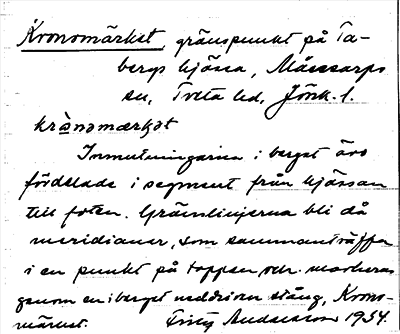 Kronomärket, gränspunkt på Ta-
bergs hjässa, Månsarps
sn, Tveta hd, Jönk. l.
krònomærkǝt
Inmutningarna i berget äro
fördelade i segment från hjässan
till foten. Gränslinjerna bli då
meridianer, som sammanträffa
i en punkt på toppen, och markeras
genom en i berget neddriven stång, Krono-
märket. Fritz Andersson 1934.